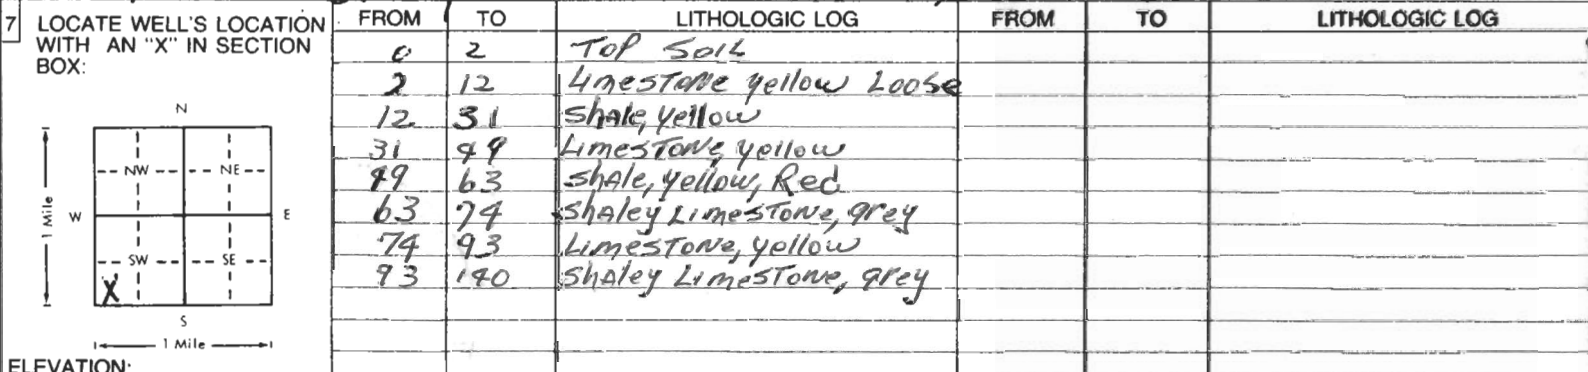 7 LOCATE WELL'S LOCATION WITH AN "X" IN SECTION BOX:
N
NW NE
W E
SW SE
X
S
1 Mile
1 Mile
ELEVATION:
FROM TO LITHOLOGIC LOG FROM TO LITHOLOGIC LOG
0 2 TOP SOIL
2 12 Limestone yellow Loose
12 31 Shale, yellow
31 49 Limestone, yellow
49 63 Shale, yellow, Red
63 74 Shaley Limestone, grey
74 93 Limestone, yellow
93 140 Shaley Limestone, grey